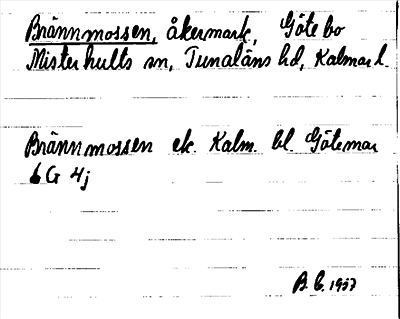 Brännmossen, åkermark, Götebo
Misterhults sn, Tunaläns hd, Kalmar l.
Brännmossen ek. Kalm. bl. Götemar
6 G 4j
B. C. 1957